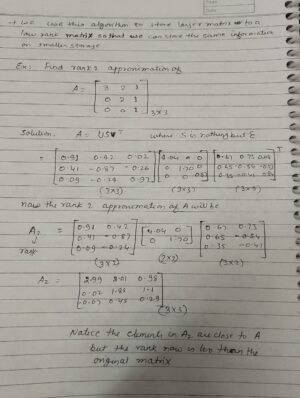 → We use this algorithm to store larger matrix to a
low rank matrix so that we can store the same information
on smaller storage
Ex: Find rank 2 approximation of
A = [3 2 1
0 2 1
0 0 1] 3x3
Solution: A = USVᵀ where S is nothing but Σ
= [0.91 0.42 0.02
0.41 -0.87 -0.26
0.09 -0.26 0.97] [4.04 0 0
0 1.70 0
0 0] [0.67 0.73
0.65 -0.54
0.35 -0.41]ᵀ
(3x3) (3x3) (3x3)
now the rank 2 approximation of A will be
A₂ = [0.91 0.42
0.41 -0.87
0.09 -0.26] [4.04 0
0 1.70] [0.67 0.73
0.65 -0.54
0.35 -0.41]
rank (3x2) (2x2) (3x2)
A₂ = [2.99 2.01 0.98
0.02 1.88 1.1
-0.07 0.45 0.29]
(3x3)
Notice the elements in A₂ are close to A
but the rank now is less than the
original matrix